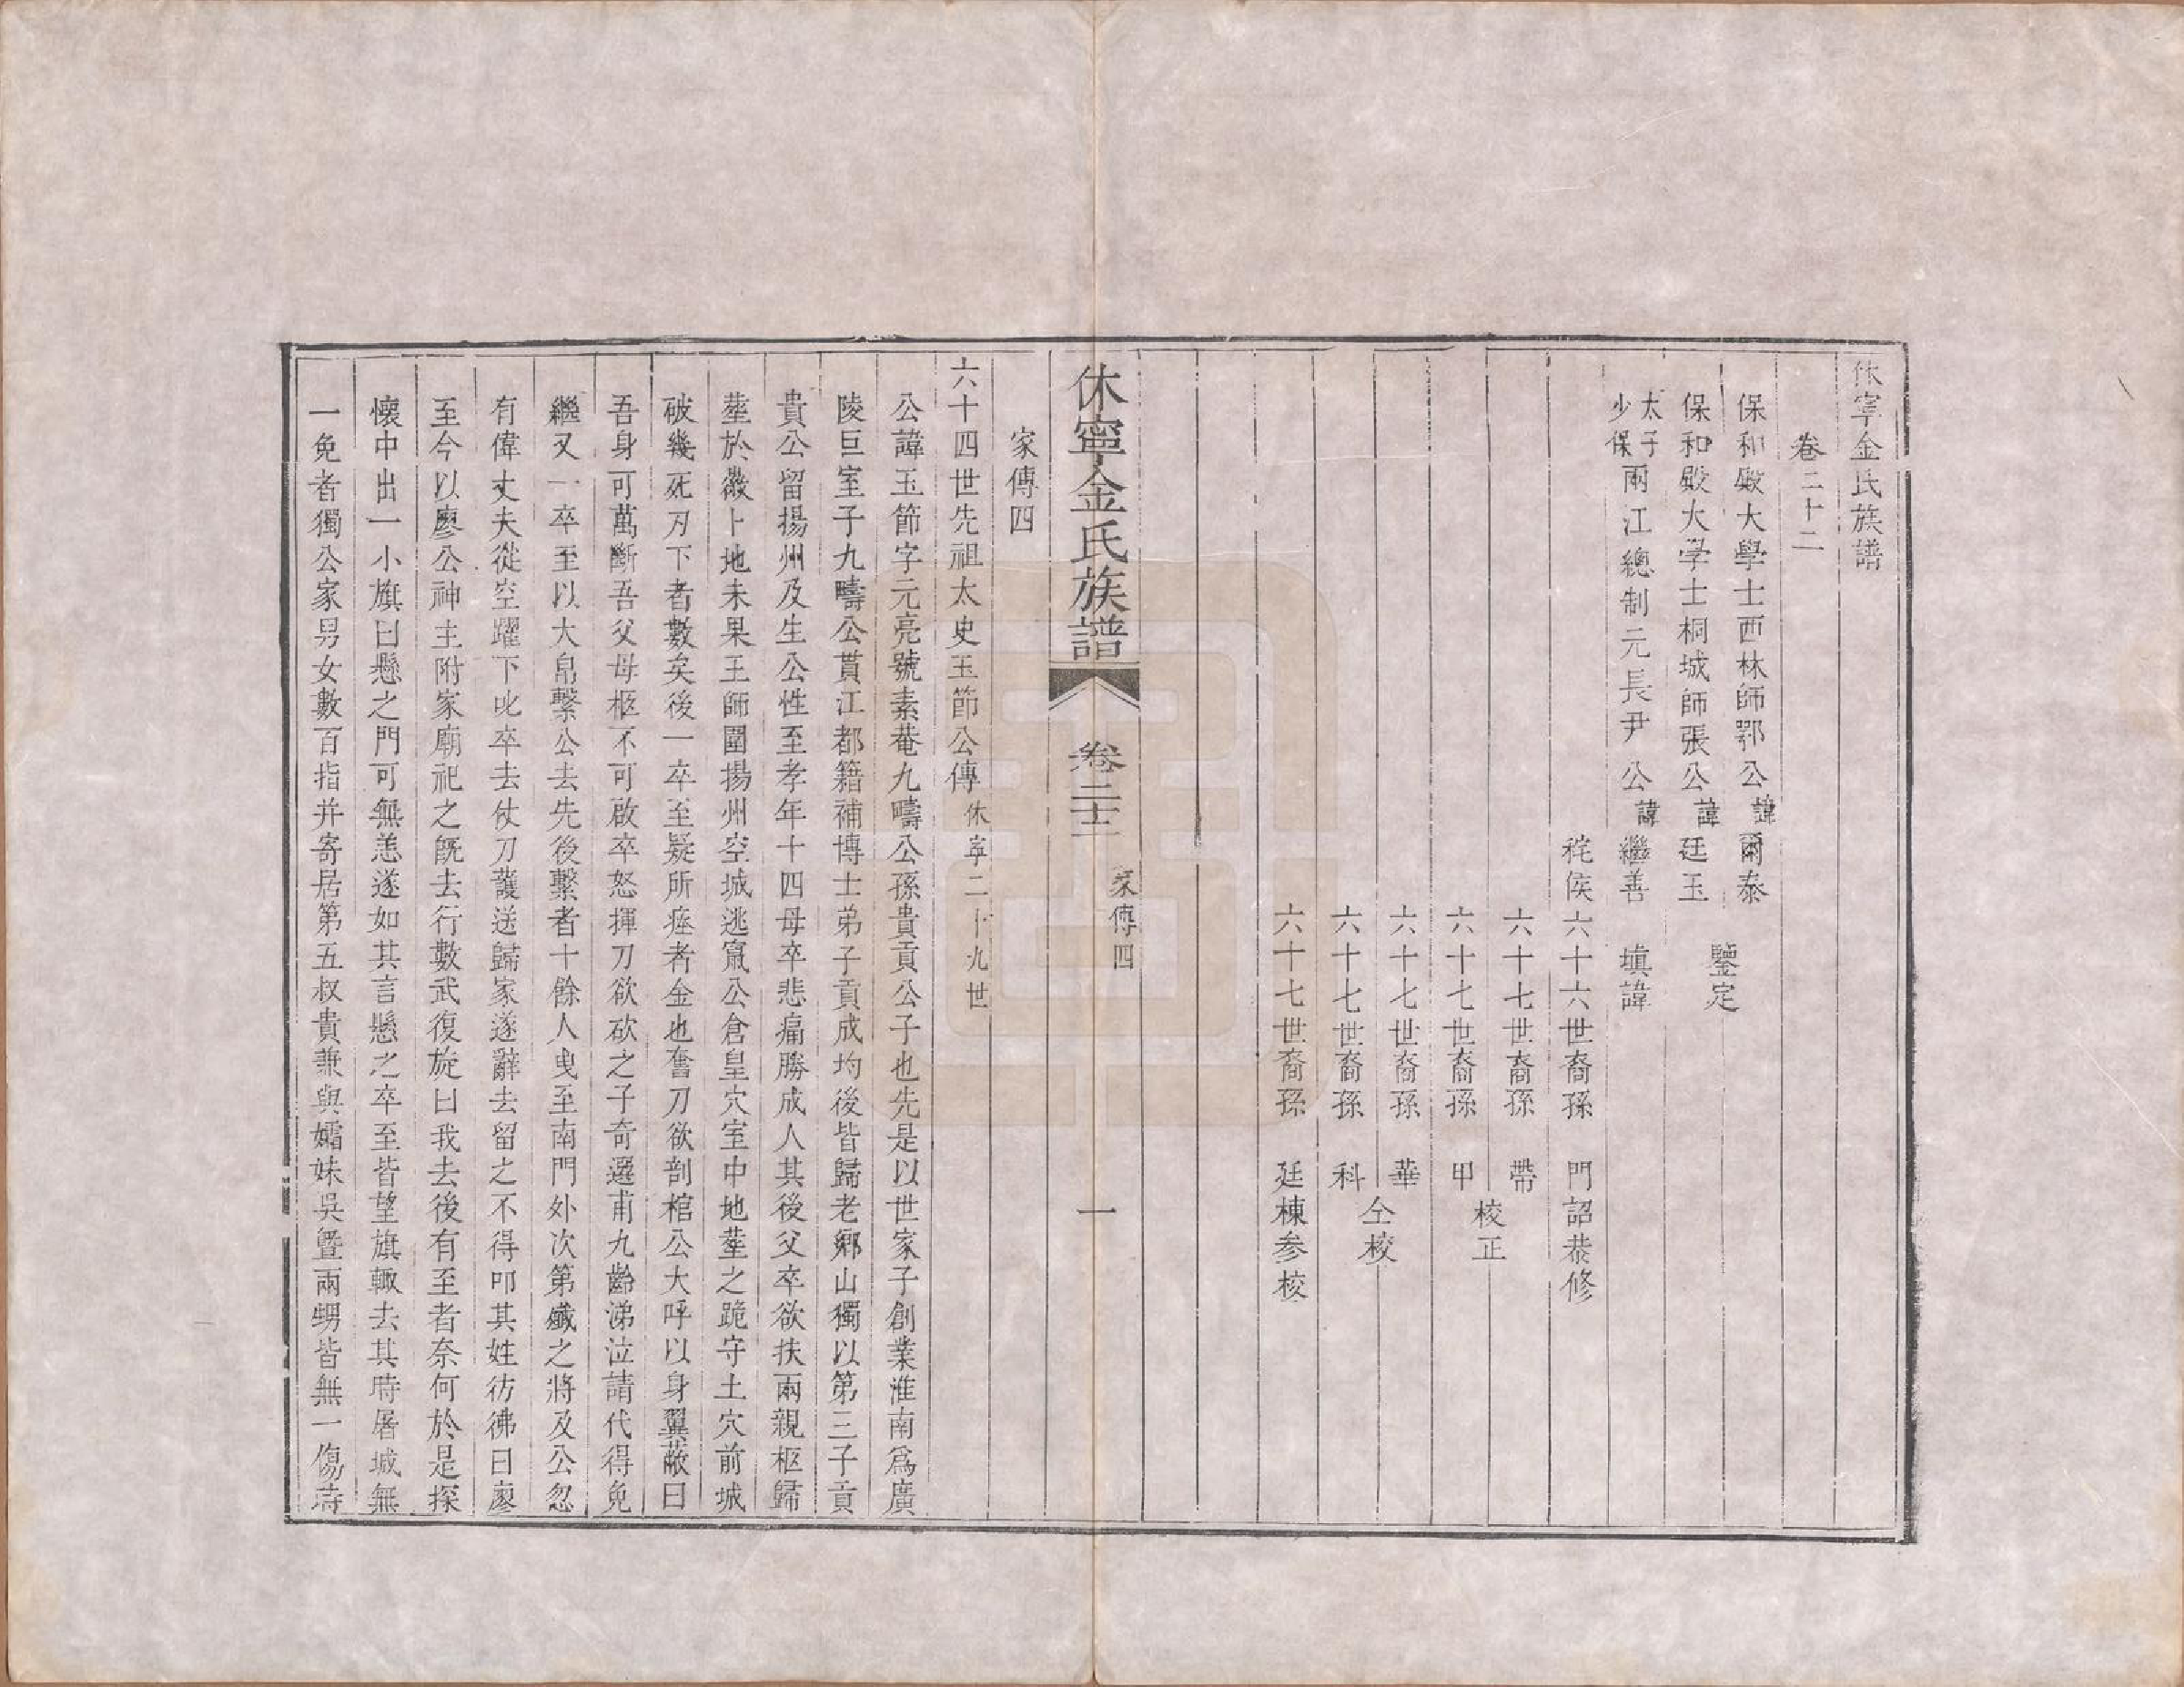 休寧金氏族譜
卷二十二
保和殿大學士西林師鄂公諱爾泰
保和殿大学士桐城師張公諱廷玉
鑒定
太子少保兩江總制元長尹公諱繼善 填諱
秺侯六十六世裔孫 門詔恭修
六十七世裔孫 帶
六十七世裔孫 甲
校正
六十七世裔孫 華
六十七世裔孫 科
仝校
六十七世裔孫 廷棟参校
休寧金氏族譜 卷二十二 家傳四 一
家傳四
六十四世先祖太史玉節公傳休寧二十九世
公諱玉節字元亮號素菴九疇公孫貴貢公子也先是以世家子創業淮南爲廣
陵巨室子九疇公貫江都籍補博士弟子貢成均後皆歸老鄉山獨以第三子貢
貴公留揚州及生公公性至孝年十四母卒悲痛勝成人其後父卒欲扶兩親柩歸
塟於徽卜地未果王師圍揚州空城逃竄公倉皇穴室中地塟之跪守土穴前城
破幾死刃下者數矣後一卒至疑所瘞者金也奮刀欲剖棺公大呼以身翼蔽曰
吾身可萬斷吾父母柩不可啟卒怒揮刀欲砍之子奇選甫九齡涕泣請代得免
繼又一卒至以大帛繫公去先後繫者十餘人曳至南門外次第殲之將及公忽
有偉丈夫從空躍下叱卒去仗刀護送歸家遂辭去留之不得叩其姓彷彿曰廖
至今以廖公神主附家廟祀之既去行數武復旋曰我去後有至者奈何於是探
懷中出一小旗曰懸之門可無恙遂如其言懸之卒至皆望旗輙去其時屠城無
一免者獨公家男女數百指并寄居第五叔貴兼與孀妹吳曁兩甥皆無一傷時